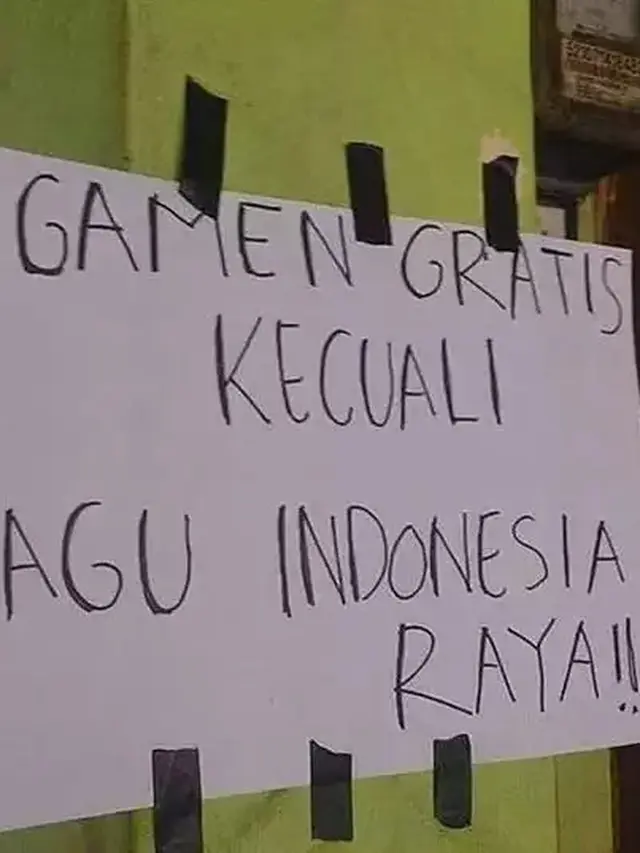 GAMEN GRATIS
KECUALI
AGU INDONESIA
RAYA!!